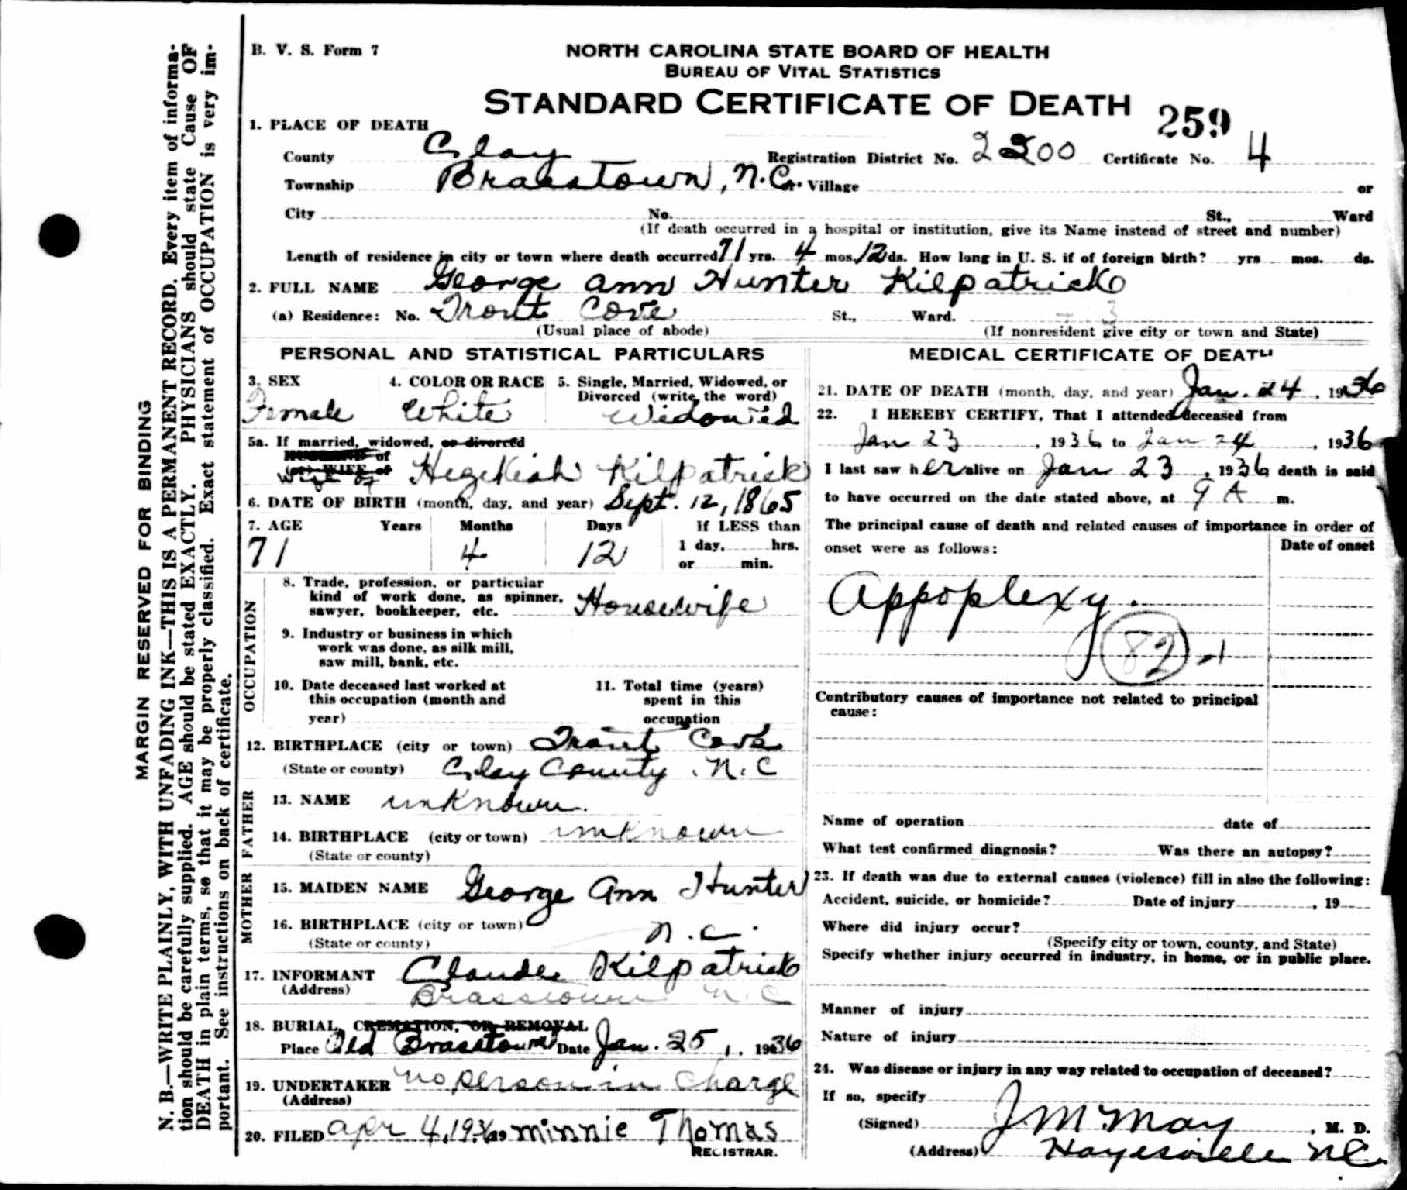 B. V. S. Form 7
NORTH CAROLINA STATE BOARD OF HEALTH
BUREAU OF VITAL STATISTICS
STANDARD CERTIFICATE OF DEATH 259
1. PLACE OF DEATH
County Clay Registration District No. 2200 Certificate No. 4
Township Brasstown, N.C. or Village or
City No. St., Ward
(If death occurred in a hospital or institution, give its Name instead of street and number)
Length of residence in city or town where death occurred 71 yrs. 4 mos. 12 ds. How long in U. S. if of foreign birth? yrs mos. ds.
2. FULL NAME George Ann Hunter Kilpatrick
(a) Residence: No. Trout Cove St., Ward. 3
(Usual place of abode) (If nonresident give city or town and State)
PERSONAL AND STATISTICAL PARTICULARS
3. SEX 4. COLOR OR RACE 5. Single, Married, Widowed, or
Divorced (write the word)
Female White Widowed
5a. If married, widowed, or divorced
HUSBAND of
(or) WIFE of
Wife of Hezekiah Kilpatrick
6. DATE OF BIRTH (month, day, and year) Sept. 12, 1865
7. AGE Years Months Days If LESS than
71 4 12 1 day, hrs.
or min.
OCCUPATION
8. Trade, profession, or particular
kind of work done, as spinner,
sawyer, bookkeeper, etc. Housewife
9. Industry or business in which
work was done, as silk mill,
saw mill, bank, etc.
10. Date deceased last worked at
this occupation (month and
year)
11. Total time (years)
spent in this
occupation
12. BIRTHPLACE (city or town) Trout Cove
(State or county) Clay County N.C
FATHER
13. NAME unknown.
14. BIRTHPLACE (city or town) unknown
(State or county)
MOTHER
15. MAIDEN NAME George Ann Hunter
16. BIRTHPLACE (city or town)
(State or county) N.C.
17. INFORMANT Claude Kilpatrick
(Address) Brasstown N C
18. BURIAL, CREMATION, OR REMOVAL
Place Old Brasstown Date Jan. 25, 1936
19. UNDERTAKER no person in charge
(Address)
20. FILED Apr 4, 1936 Minnie Thomas
REGISTRAR.
MEDICAL CERTIFICATE OF DEATH
21. DATE OF DEATH (month, day, and year) Jan. 24, 1936
22. I HEREBY CERTIFY, That I attended deceased from
Jan 23, 1936 to Jan 24, 1936
I last saw her alive on Jan 23, 1936 death is said
to have occurred on the date stated above, at 9 A m.
The principal cause of death and related causes of importance in order of
onset were as follows: Date of onset
Appoplexy.
82
Contributory causes of importance not related to principal
cause:
Name of operation date of
What test confirmed diagnosis? Was there an autopsy?
23. If death was due to external causes (violence) fill in also the following:
Accident, suicide, or homicide? Date of injury , 19
Where did injury occur?
(Specify city or town, county, and State)
Specify whether injury occurred in industry, in home, or in public place.
Manner of injury
Nature of injury
24. Was disease or injury in any way related to occupation of deceased?
If so, specify
(Signed) J M May, M. D.
(Address) Hayesville NC
MARGIN RESERVED FOR BINDING
N. B.—WRITE PLAINLY, WITH UNFADING INK—THIS IS A PERMANENT RECORD. Every item of informa-
tion should be carefully supplied. AGE should be stated EXACTLY. PHYSICIANS should state Cause OF
DEATH in plain terms, so that it may be properly classified. Exact statement of OCCUPATION is very im-
portant. See instructions on back of certificate.